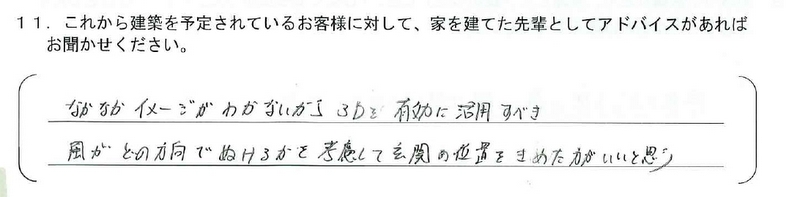 11．これから建築を予定されているお客様に対して、家を建てた先輩としてアドバイスがあれば
お聞かせください。
なかなかイメージがわかないから 3Dを有効に活用すべき
風がどの方向でぬけるかを考慮して玄関の位置をきめた方がいいと思う